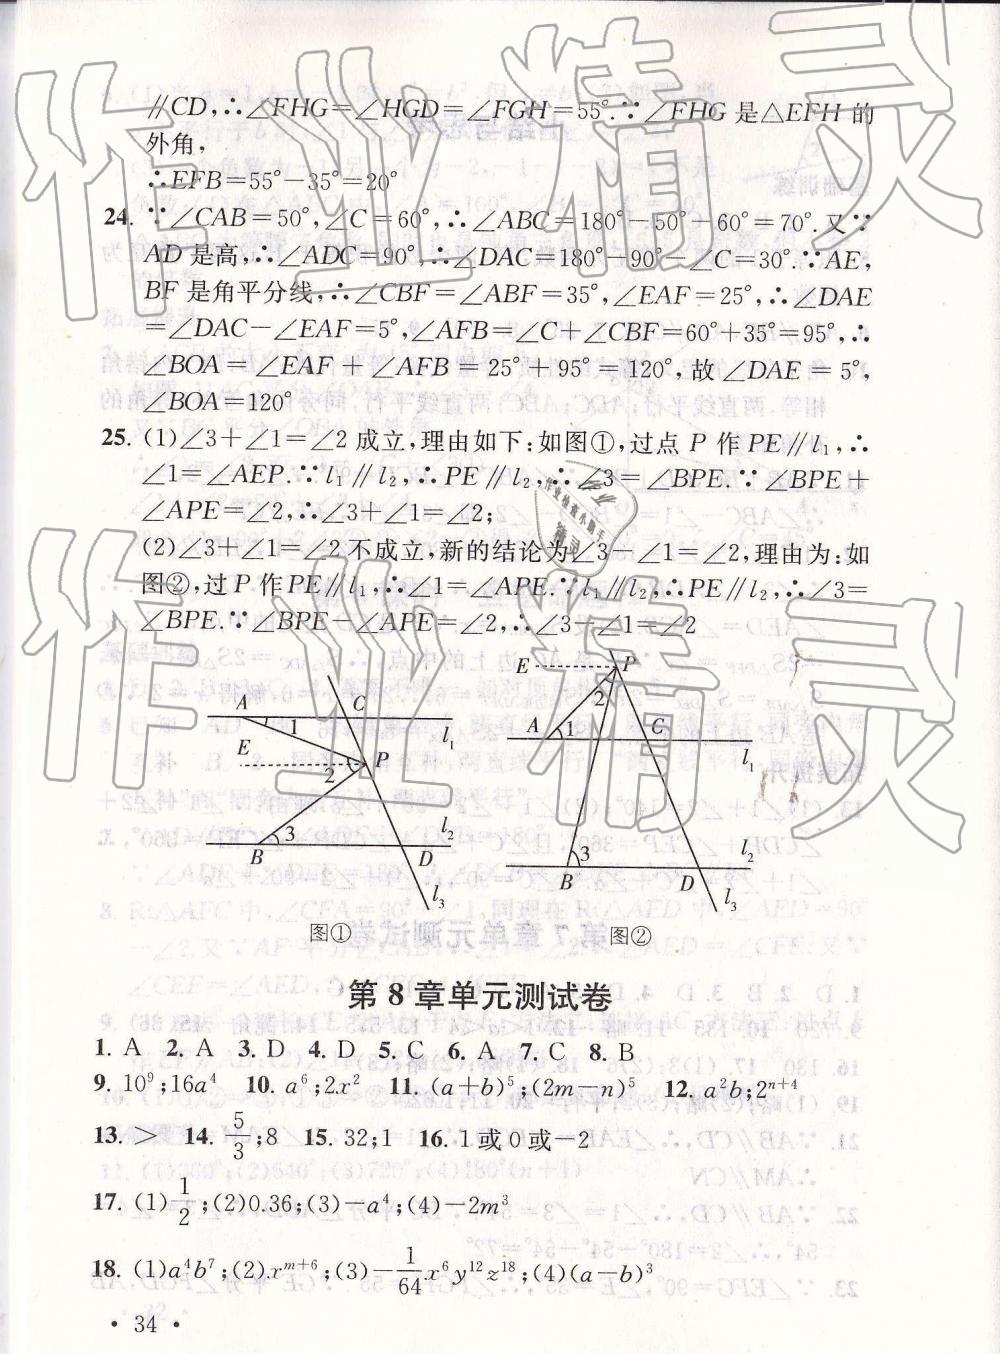 ∥CD,∴∠FHG=∠HGD=∠FGH=55°.∵∠FHG是△EFH的
外角,
∴EFB=55°-35°=20°
24. ∵∠CAB=50°,∠C=60°,∴∠ABC=180°-50°-60°=70°.又∵
AD是高,∴∠ADC=90°,∴∠DAC=180°-90°-∠C=30°.∵AE,
BF是角平分线,∴∠CBF=∠ABF=35°,∠EAF=25°,∴∠DAE
=∠DAC-∠EAF=5°,∠AFB=∠C+∠CBF=60°+35°=95°,∴
∠BOA=∠EAF+∠AFB=25°+95°=120°,故∠DAE=5°,
∠BOA=120°
25. (1)∠3+∠1=∠2成立,理由如下:如图①,过点P作PE∥l₁,∴
∠1=∠AEP.∵l₁∥l₂,∴PE∥l₂,∴∠3=∠BPE.∵∠BPE+
∠APE=∠2,∴∠3+∠1=∠2;
(2)∠3+∠1=∠2不成立,新的结论为∠3-∠1=∠2,理由为:如
图②,过P作PE∥l₁,∴∠1=∠APE.∵l₁∥l₂,∴PE∥l₂,∴∠3=
∠BPE.∵∠BPE-∠APE=∠2,∴∠3-∠1=∠2
A 1 C l₁
E 2 P
3 B D l₂
l₃
图①
E P
2
A 1 C l₁
3 B D l₂
l₃
图②
第8章单元测试卷
1. A 2. A 3. D 4. D 5. C 6. A 7. C 8. B
9. 10⁹;16a⁴ 10. a⁶;2x² 11. (a+b)⁵;(2m-n)⁵ 12. a²b;2ⁿ⁺⁴
13. > 14. 5/3;8 15. 32;1 16. 1或0或-2
17. (1)1/2;(2)0.36;(3)-a⁴;(4)-2m³
18. (1)a⁴b⁷;(2)xᵐ⁺⁶;(3)-1/64x⁶y¹²z¹⁸;(4)(a-b)³
· 34 ·
作业精灵
作业精灵
作业检查小助手